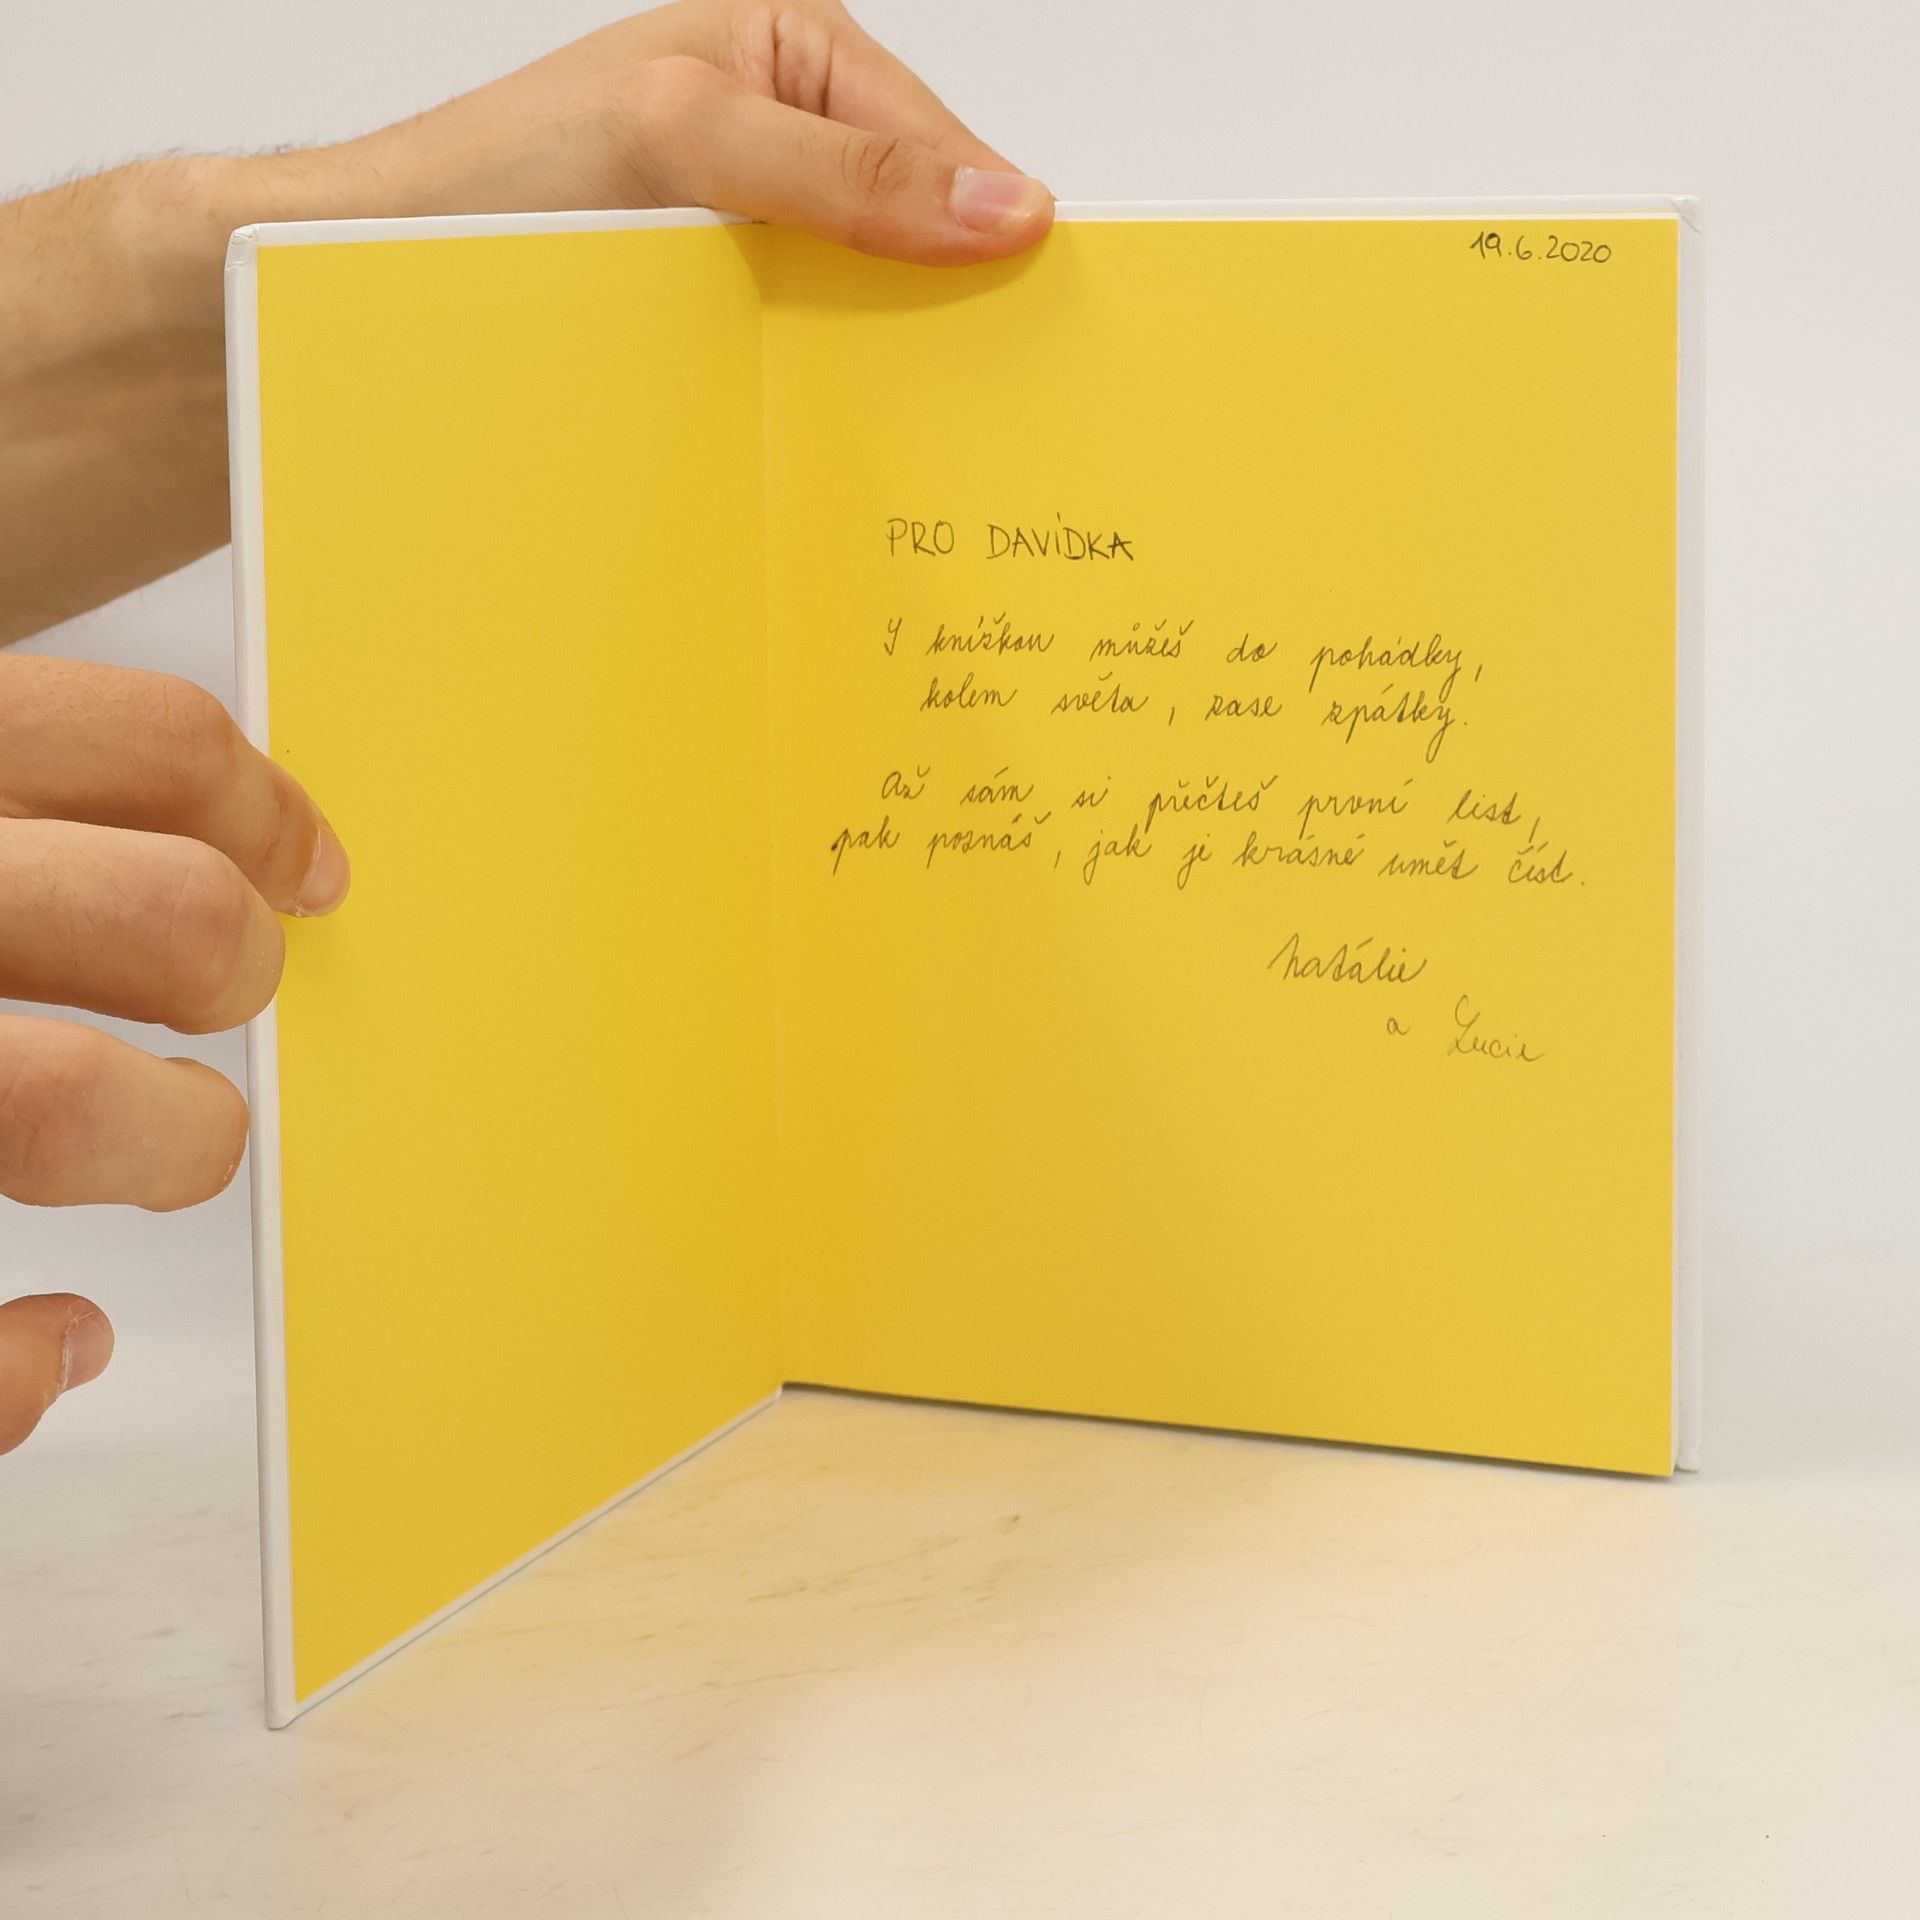 19.6.2020
PRO DAVÍDKA
S knížkou můžeš do pohádky,
kolem světa, zase zpátky.
Až sám si přečteš první list,
pak poznáš, jak je krásné umět číst.
Natálie
a Lucie